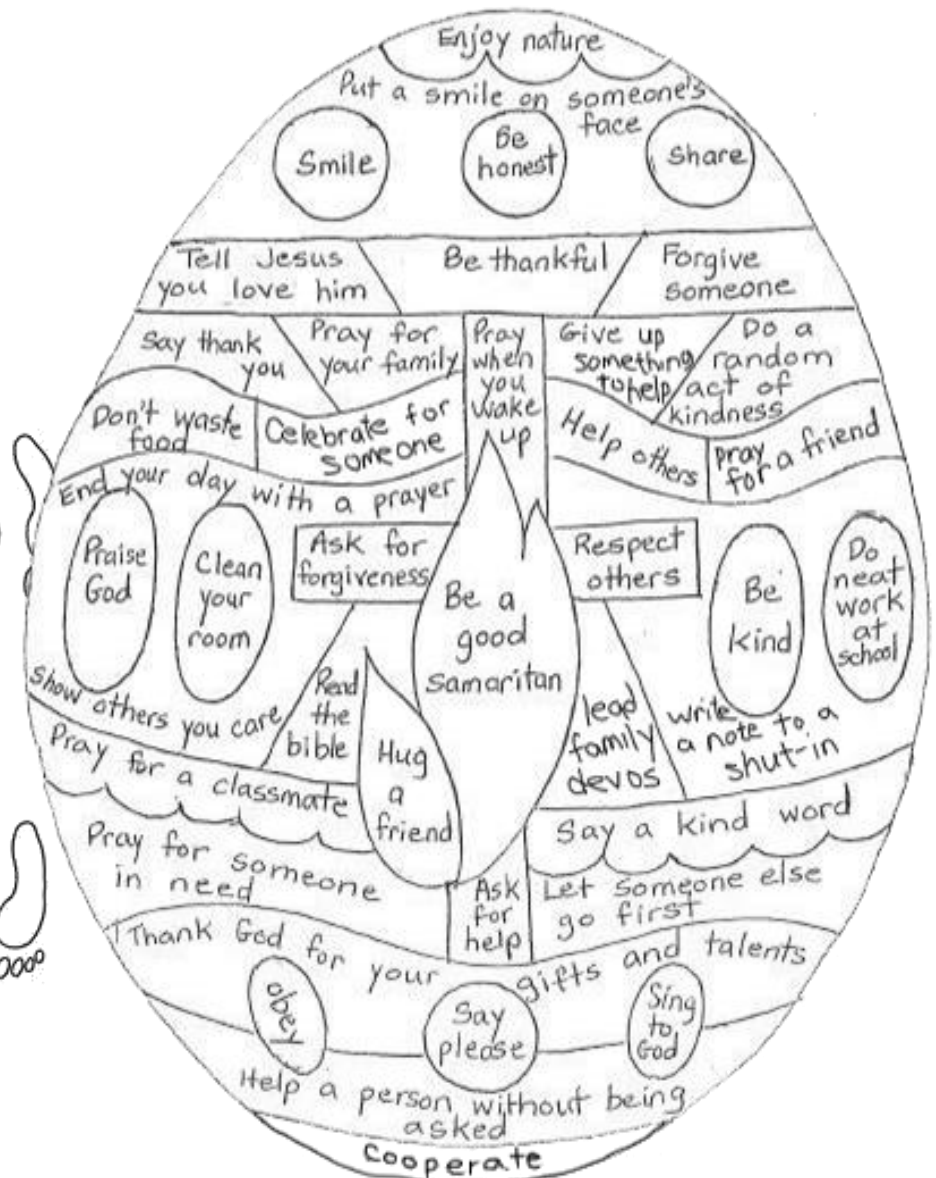 Enjoy nature
Put a smile on someone's
face
Smile
Be
honest
Share
Tell Jesus
you love him
Be thankful
Forgive
someone
Say thank
you
Pray for
your family
Pray
when
you
wake
up
Give up
something
to help
Do a
random
act of
kindness
Don't waste
food
Celebrate for
someone
Help others
pray
for a friend
End your day with a prayer
Praise
God
Clean
your
room
Ask for
forgiveness
Be a
good
Samaritan
Respect
others
Be
kind
Do
neat
work
at
school
Show others you care
Read
the
bible
Hug
a
friend
lead
family
devos
write
a note to a
shut-in
Pray for a classmate
Say a kind word
Pray for someone
in need
Ask
for
help
Let someone else
go first
Thank God for your gifts and talents
obey
Say
please
Sing
to
God
Help a person without being
asked
Cooperate